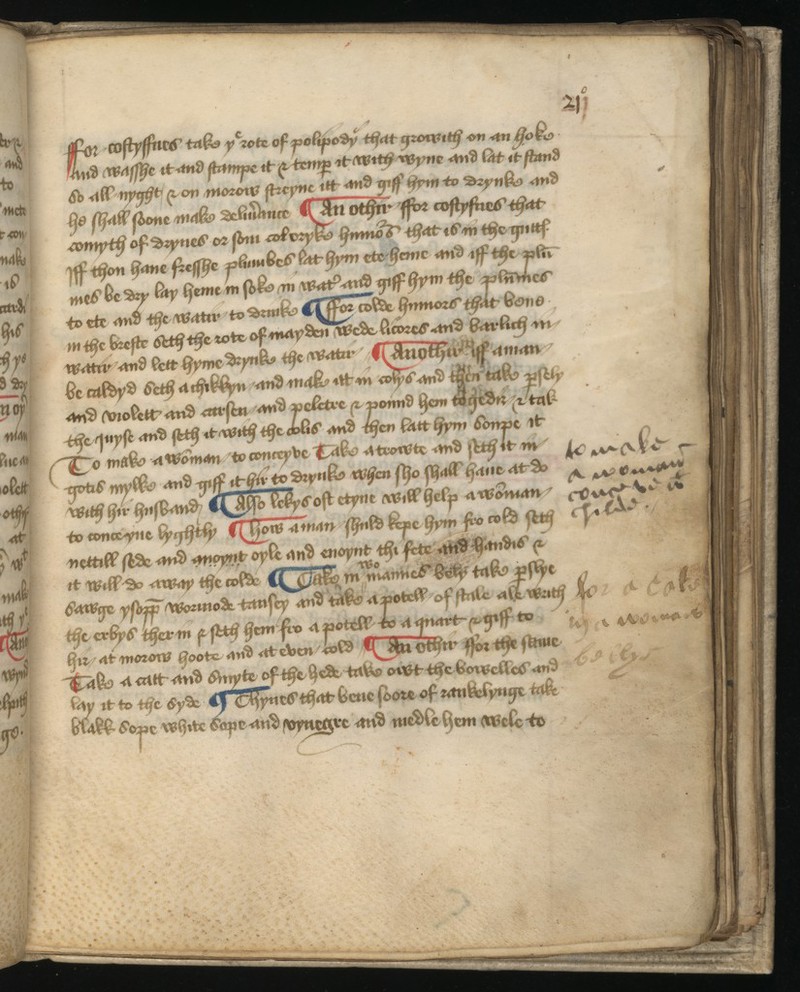 21
ffor costyffnes take ye rote of polipody that growith on an hoke
and wasshe it and stampe it & temp it with wyne and lat it stand
so all nyght & on morow streyne itt and giff hym to drynke and
he shall soone make delivance An othir ffor costyfnes that
comyth of drynes or som coleryke humors that is in the guttf
Iff thou haue fresshe plumbes lat hym ete heme and iff the plu
mes be dry lay heme in soke in wat and giff hym the plumes
to ete and the watir to drinke ffor colde humors that bene
in the breste seth the rote of mayden wede licores and barlich in
watir and lett hyme drynke the watir Anothir iff a man
be caldyd seth a chikkyn and make it in colys and then take psely
and violett and carsen and peletre & pound hem togedir & tak
the juyse and seth it with the colis and then latt hym soupe it
To make a woman to conceyve Take a trowte and seth it in
gotis mylke and giff it hir to drynke when sho shall haue at do
with hir husband Also lekys oft etyne will help a woman
to conceyue lyghtly How a man shuld kepe hym fro cold seth
nettill sede and anoynt oyle and enoynt thi fete and handis &
it will do away the colde Take in womannes bely take pslye
sawge ysopp wormode tansey and take a potell of stale ale with
the erbys ther in & seth hem fro a potell to a quart & giff to
hir at morow hoote and at even cold An othir ffor the same
Take a catt and smyte of the hede take owt the bowelles and
lay it to the syde Thynes that bene soore of rankelynge take
blakk sope white sope and vynegre and medle hem wele to
to make
a woman
conceve a
childe.
for a Cake
in a womans
bellye